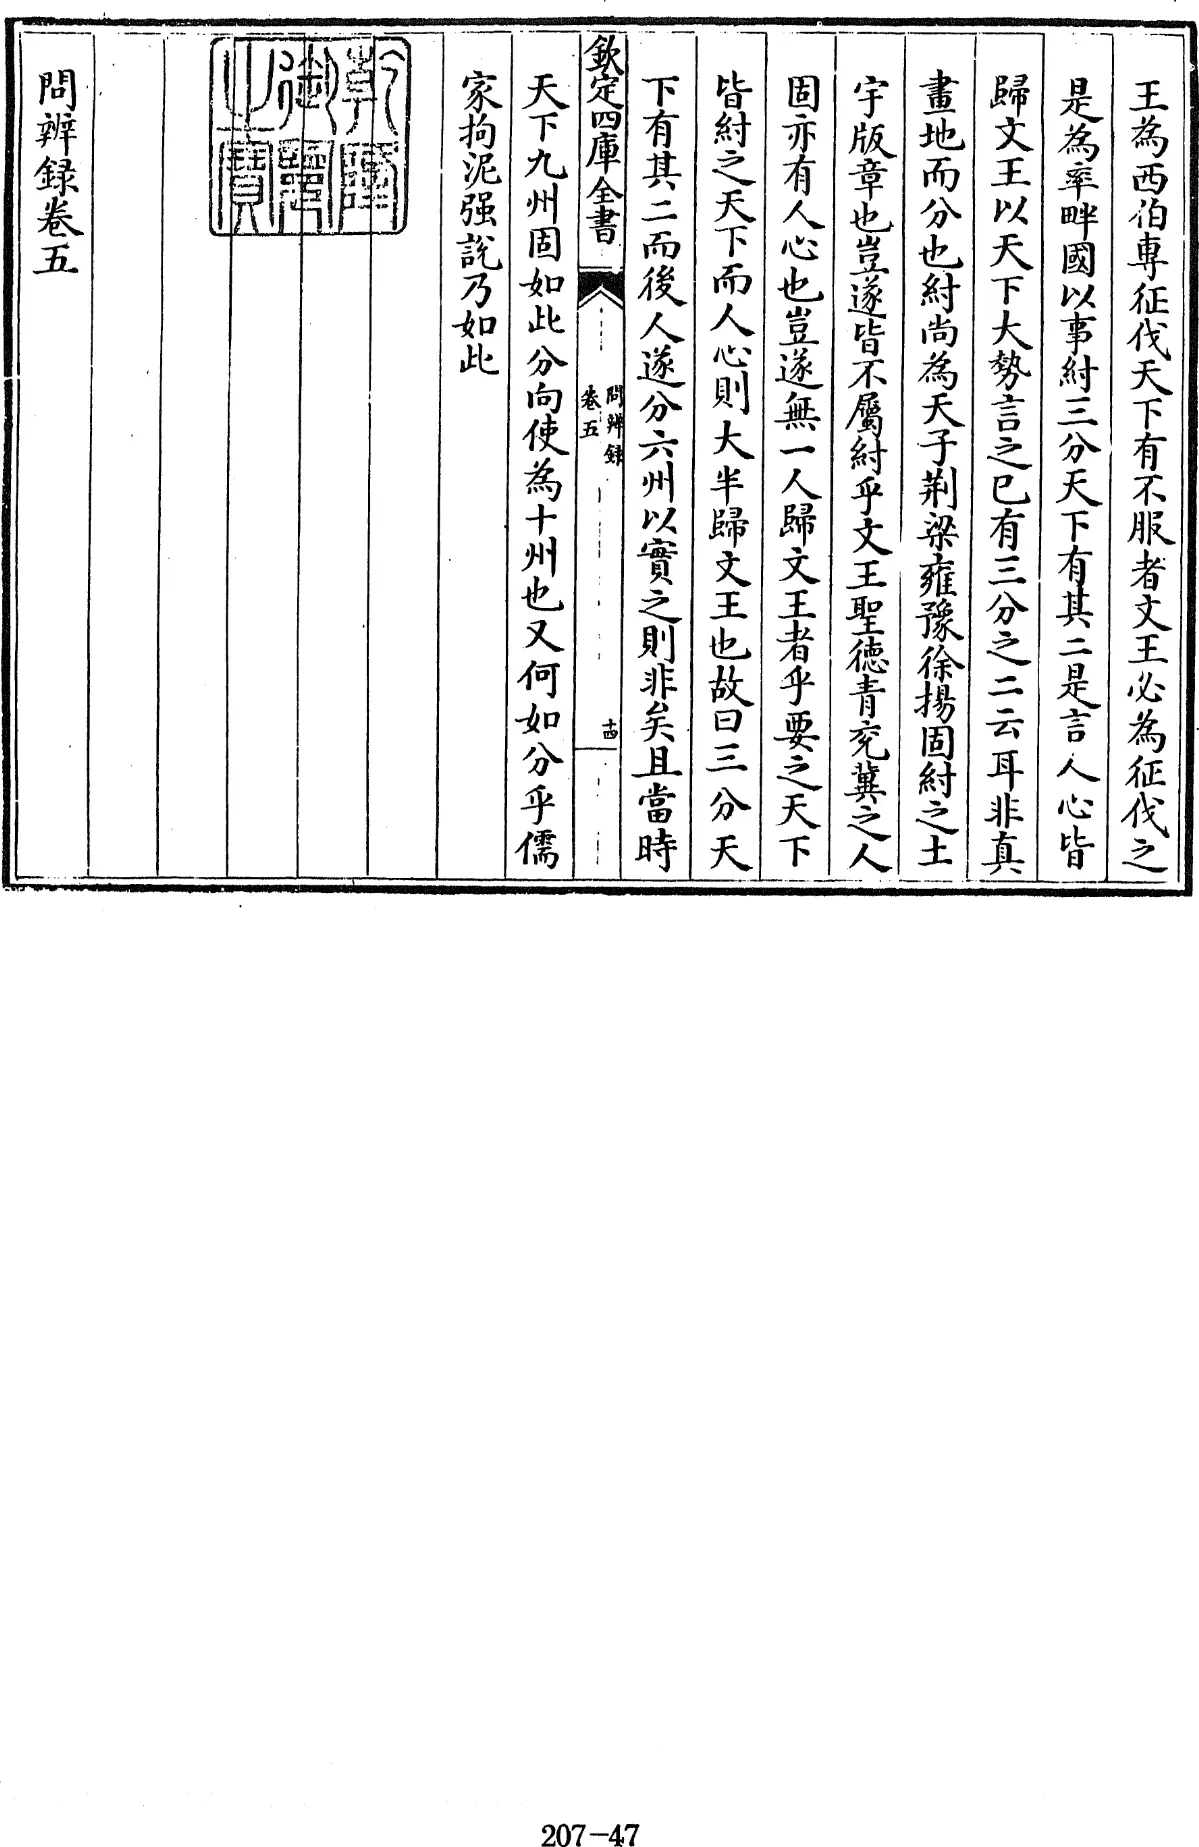 王為西伯專征伐天下有不服者文王必為征伐之
是為率畔國以事紂三分天下有其二是言人心皆
歸文王以天下大勢言之已有三分之二云耳非真
畫地而分也紂尚為天子荆梁雍豫徐揚固紂之土
宇版章也豈遂皆不屬紂乎文王聖德青兖冀之人
固亦有人心也豈遂無一人歸文王者乎要之天下
皆紂之天下而人心則大半歸文王也故曰三分天
下有其二而後人遂分六州以實之則非矣且當時
欽定四庫全書
問辨録
卷五
十四
天下九州固如此分向使為十州也又何如分乎儒
家拘泥强説乃如此
乾隆御覽之寶
問辨録卷五
207-47